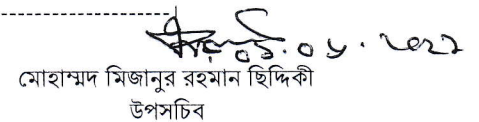 ০১.০৮.২০২২
মোহাম্মদ মিজানুর রহমান ছিদ্দিকী
উপসচিব